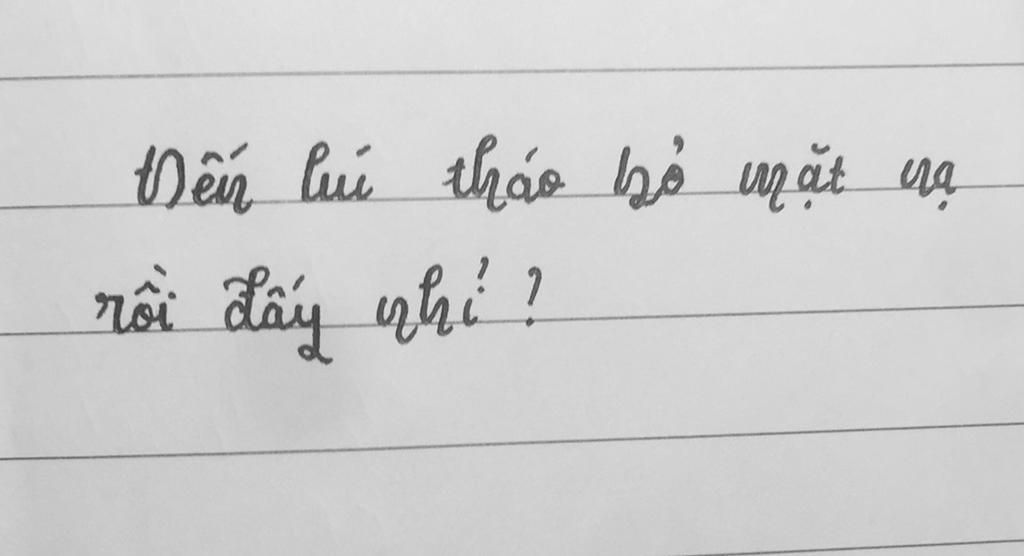 Đến lúc tháo bỏ mặt nạ
rồi đấy nhỉ?